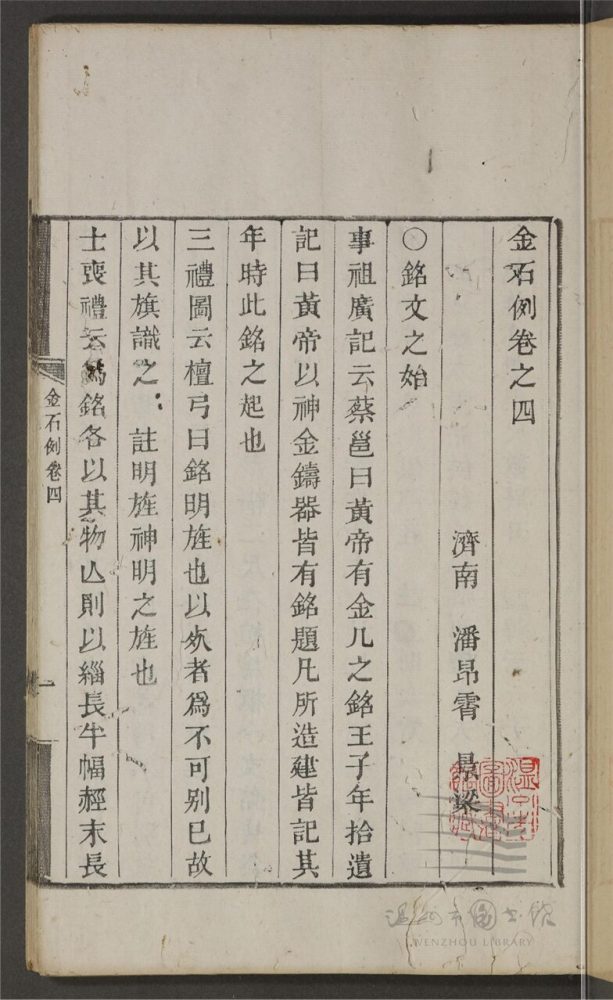 金石例卷之四
濟南 潘昂霄 景梁
○銘文之始
事祖廣記云蔡邕曰黃帝有金几之銘王子年拾遺
記曰黃帝以神金鑄器皆有銘題凡所造建皆記其
年時此銘之起也
三禮圖云檀弓曰銘明旌也以死者爲不可别已故
以其旗識之 註明旌神明之旌也
士喪禮云爲銘各以其物亾則以緇長半幅䞓末長
金石例卷四
一
溫州市圖書館
WENZHOU LIBRARY